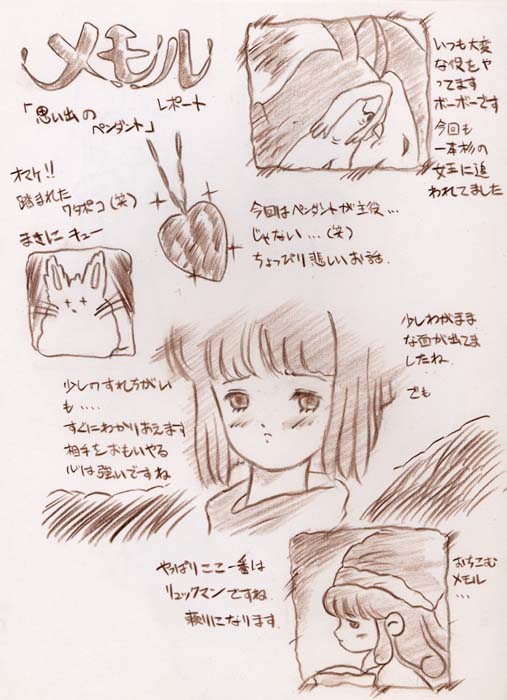 メモル
「思い出の
ペンダント」
レポート
いつも大変
な役をや
ってます
ボーボーです
今回も
一本杉の
女王に追
われてました
オマケ!!
踏まれた
ワタポコ(笑)
まさに キュー
今回はペンダントが主役…
じゃない…(笑)
ちょっぴり悲しいお話.
少しわがまま
な面が出てま
したね.
でも
少しのすれちがい
も‥‥
すぐにわかりあえます
相手をおもいやる
心は強いですね
やっぱりここ一番は
リュックマンですね.
頼りになります.
おちこむ
メモル
…